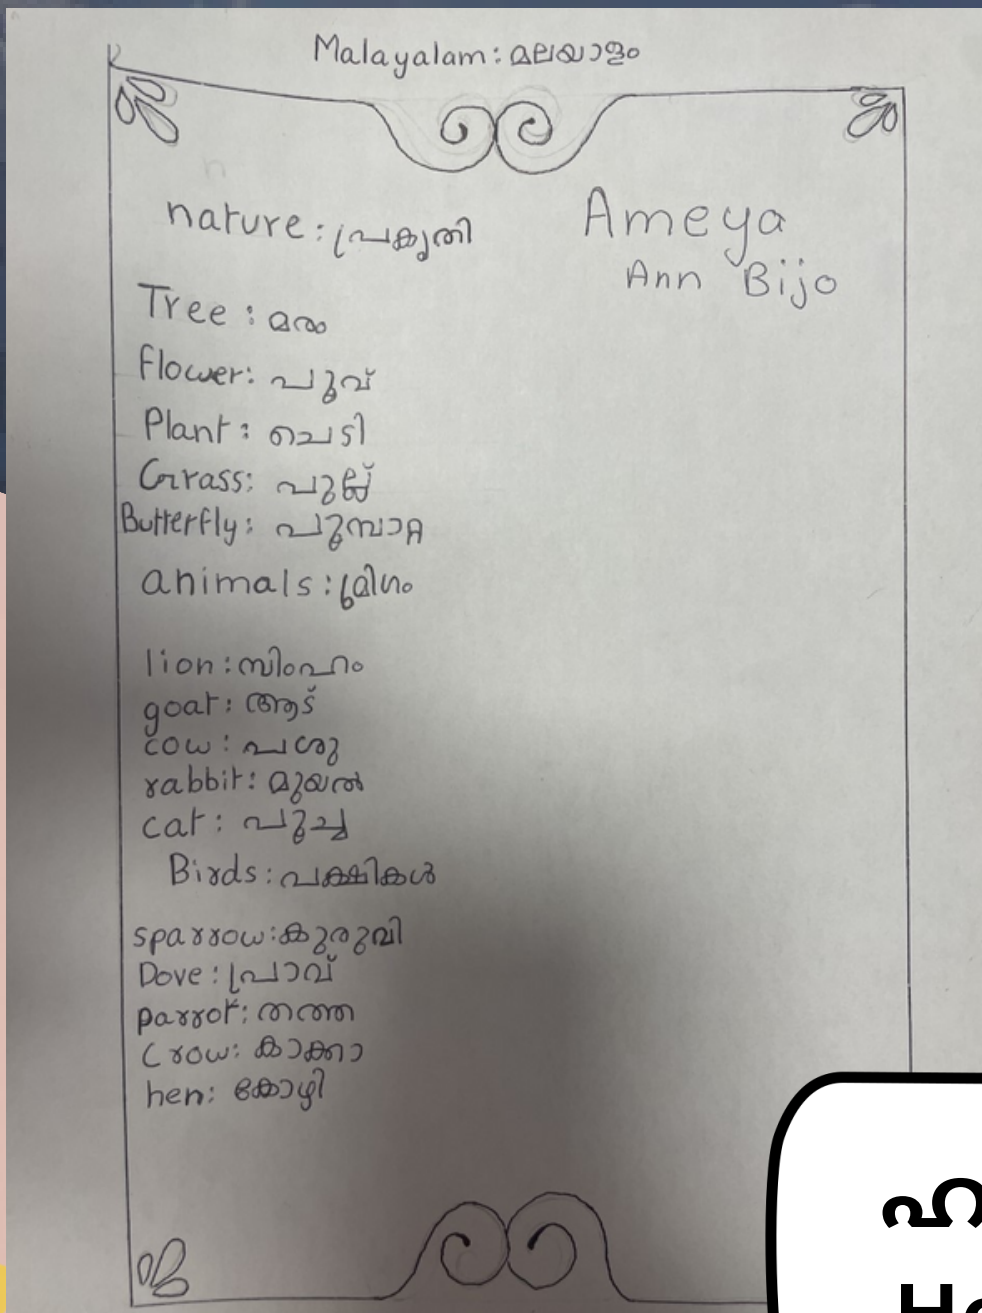 Malayalam: മലയാളം
nature: പ്രകൃതി
Ameya
Ann Bijo
Tree: മരം
flower: പൂവ്
Plant: ചെടി
Grass: പുല്ല്
Butterfly: പൂമ്പാറ്റ
animals: മ്രിഗം
lion: സിംഹം
goat: ആട്
cow: പശു
rabbit: മുയൽ
cat: പൂച്ച
Birds: പക്ഷികൾ
sparrow: കുരുവി
Dove: പ്രാവ്
parrot: തത്ത
Crow: കാക്ക
hen: കോഴി